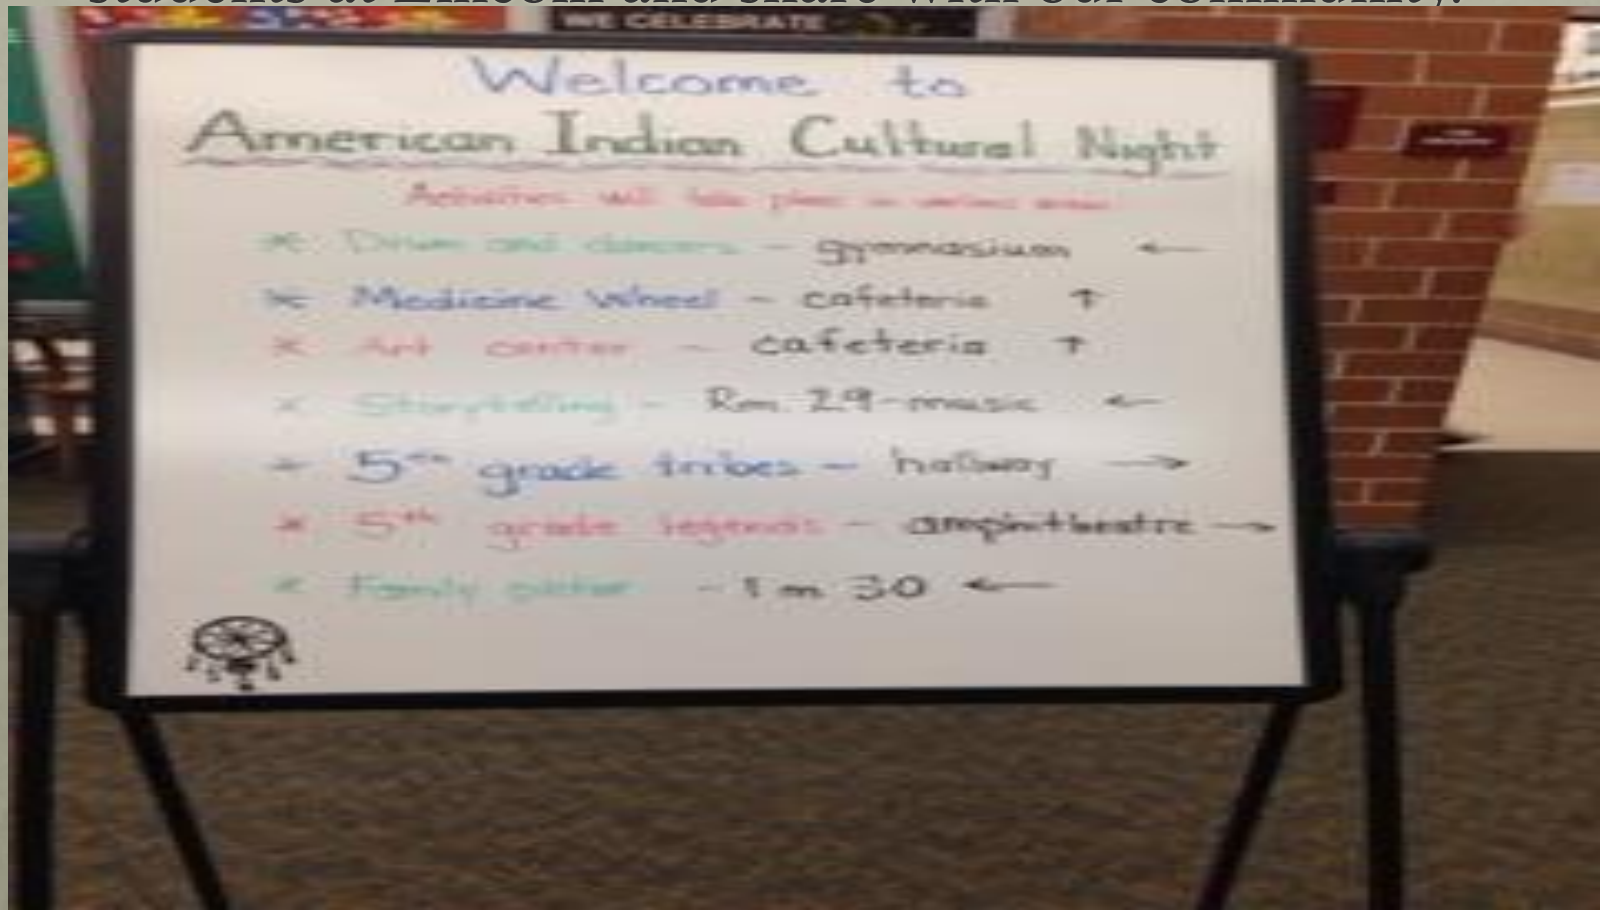 students at Lincoln and share with our community.
WE CELEBRATE
Welcome to
American Indian Cultural Night
Activities will take place in various areas
* Drum and dancers - gymnasium ←
* Medicine Wheel - cafeteria ↑
* Art center - cafeteria ↑
* Storytelling - Rm. 29-music ←
* 5th grade tribes - hallway →
* 5th grade legends - amphitheatre →
* Family - 30 ←